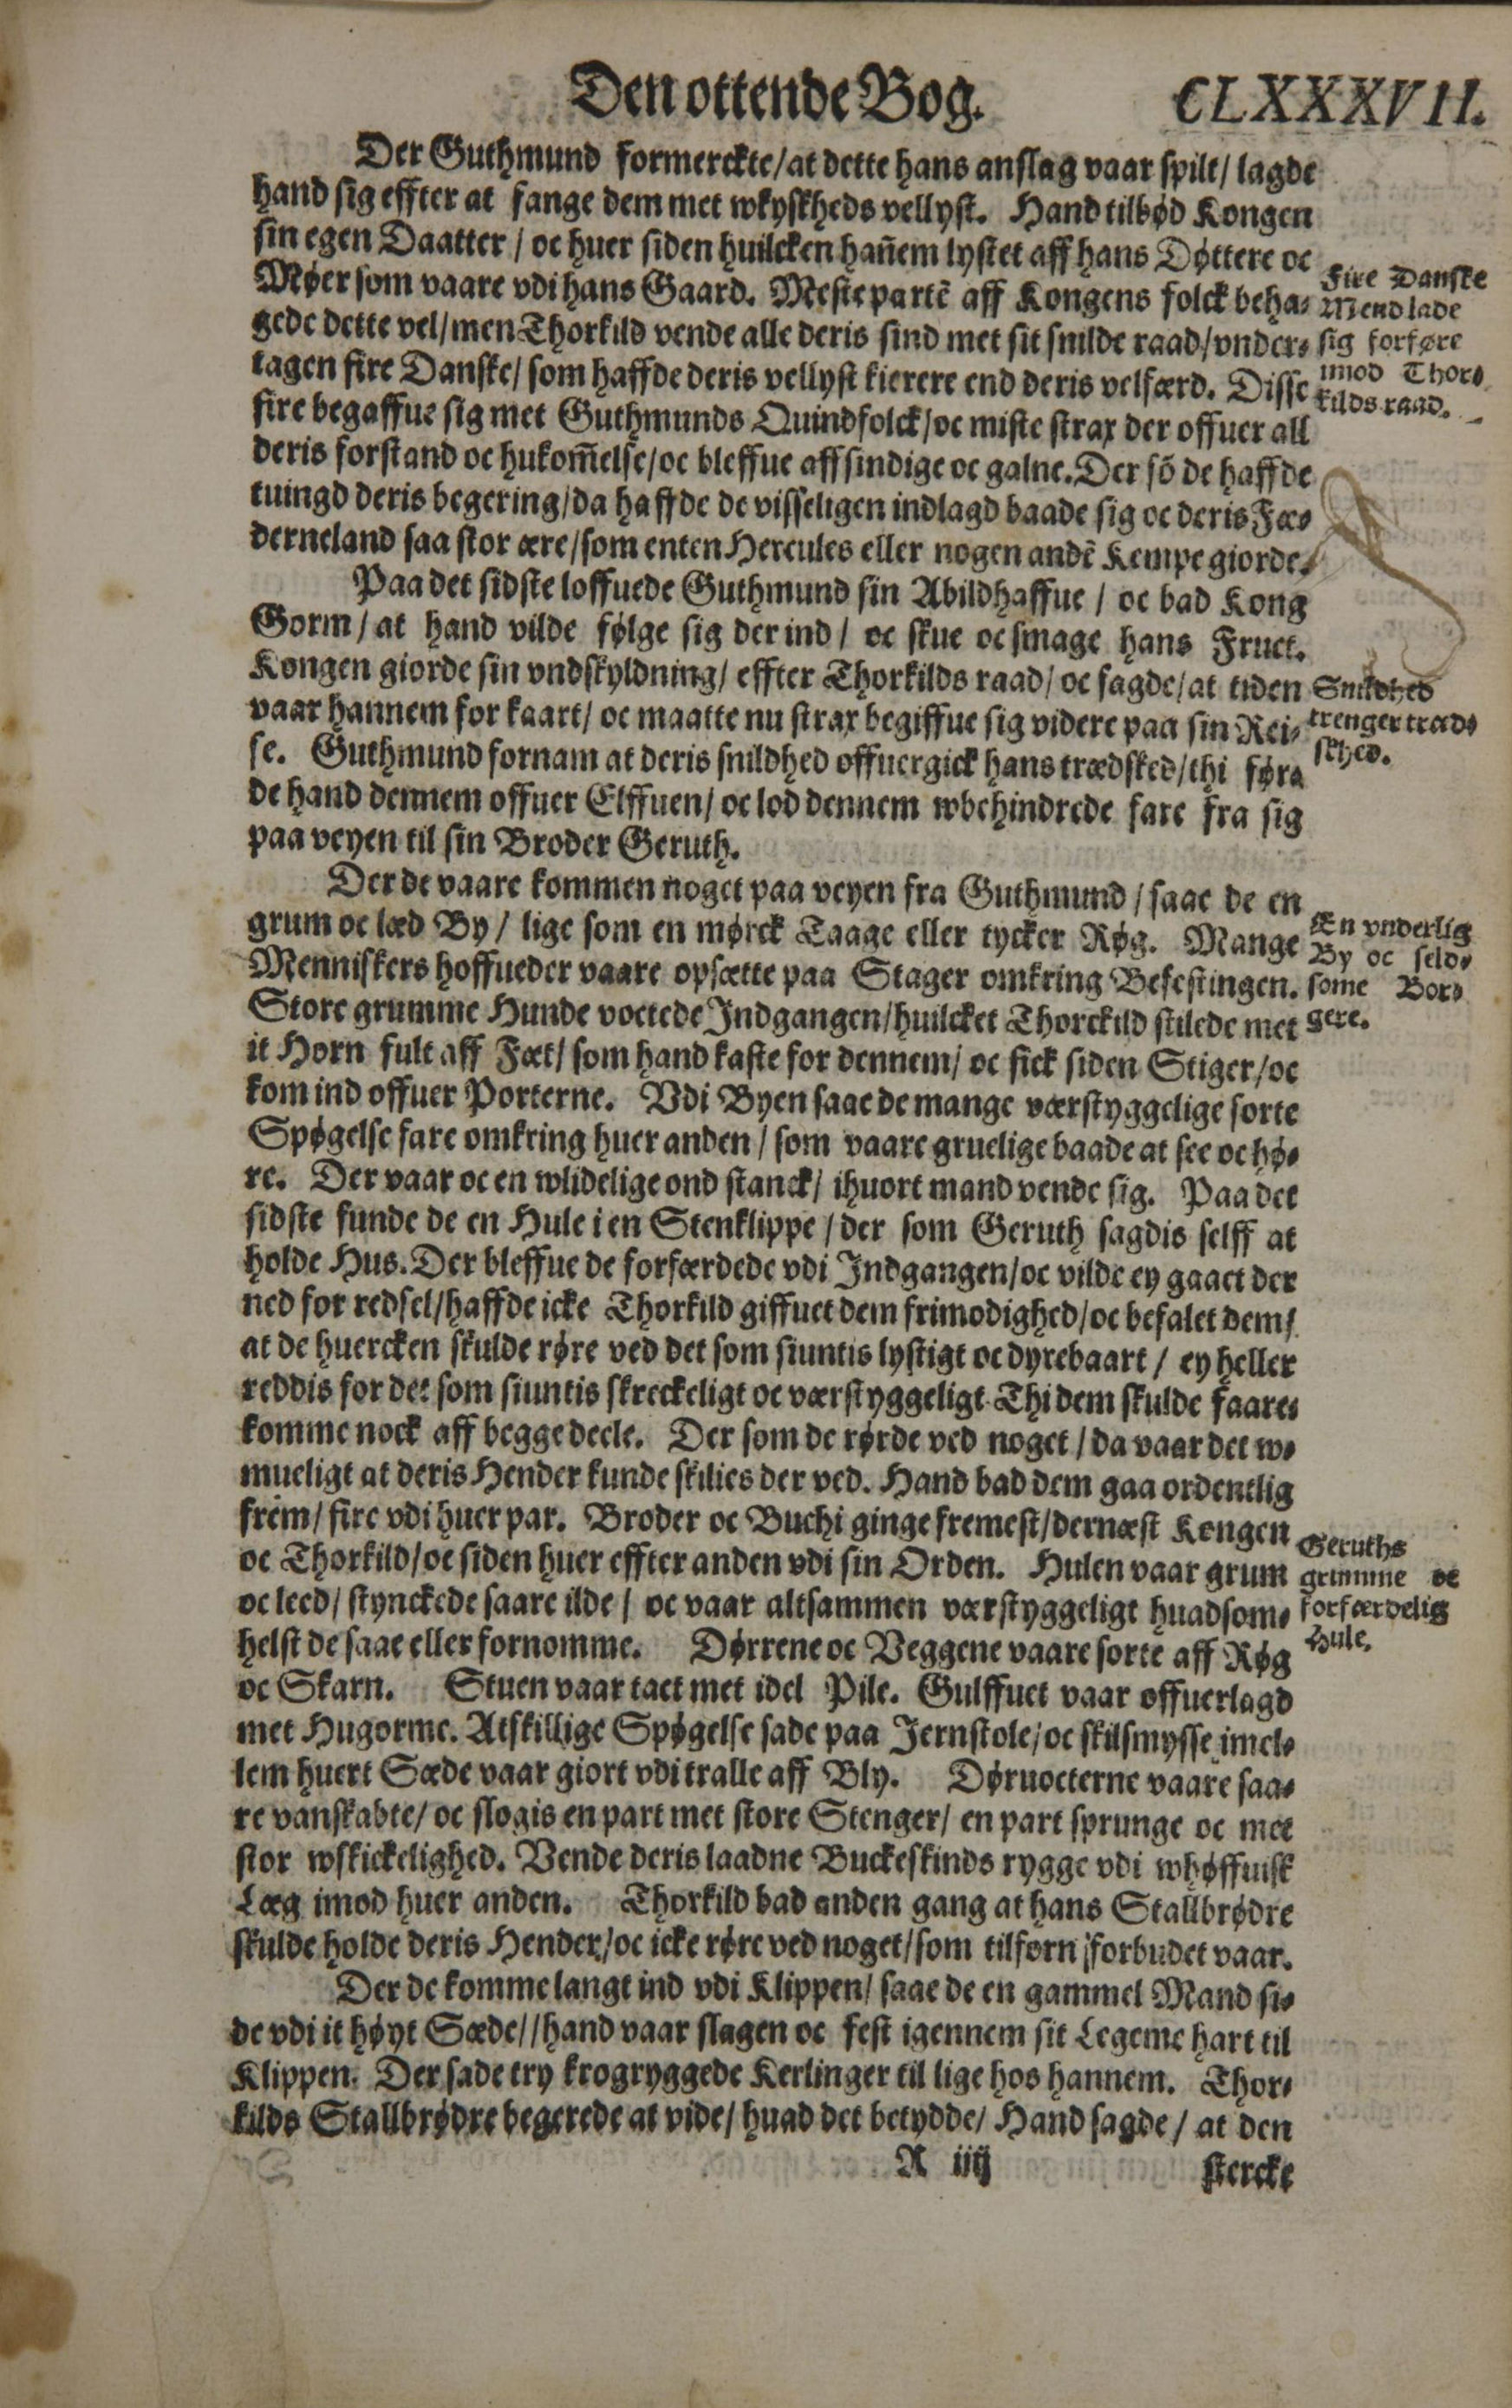 Den ottende Bog. CLXXXVII.
Der Guthmund formerckte/at dette hans anslag vaar spilt/ lagde
hand sig effter at fange dem met wkyskheds vellyst. Hand tilbød Kongen
sin egen Daatter / oc huer siden huilcken hañem lystet aff hans Døttere oc
Møer som vaare vdi hans Gaard. Meste partẽ aff Kongens folck beha⸗
gede dette vel/men Thorkild vende alle deris sind met sit snilde raad/vnder⸗
tagen fire Danske/ som haffde deris vellyst kierere end deris velfærd. Disse
fire begaffue sig met Guthmunds Quindfolck/oc miste strax der offuer all
deris forstand oc hukom̃else/oc bleffue affsindige oc galne. Der sõ de haffde
tuingd deris begering/da haffde de visseligen indlagd baade sig oc deris Fæ⸗
derneland saa stor ære/som enten Hercules eller nogen andẽ Kempe giorde.
Fire Danske
Mend lade
sig forføre
imod Thor⸗
kilds raad.
Paa det sidste loffuede Guthmund sin Abildhaffue / oc bad Kong
Gorm/ at hand vilde følge sig der ind / oc skue oc smage hans Fruct.
Kongen giorde sin vndskyldning/ effter Thorkilds raad/ oc sagde/at tiden
vaar hannem for kaart/ oc maatte nu strax begiffue sig videre paa sin Rei⸗
se. Guthmund fornam at deris snildhed offuergick hans trædsked/thi føra
de hand dennem offuer Elffuen/ oc lod dennem wbehindrede fare fra sig
paa veyen til sin Broder Geruth.
Snildhed
trenger træd⸗
skhed.
Der de vaare kommen noget paa veyen fra Guthmund / saae de en
grum oc læd By / lige som en mørck Taage eller tycker Røg. Mange
Menniskers hoffueder vaare opsætte paa Stager omkring Befestingen.
Store grumme Hunde voctede Indgangen/huilcket Thorckild stilede met
it Horn fult aff Fæt/ som hand kaste for dennem/ oc fick siden Stiger/oc
kom ind offuer Porterne. Vdi Byen saae de mange værstyggelige sorte
Spøgelse fare omkring huer anden / som vaare gruelige baade at see oc hø⸗
re. Der vaar oc en wlidelige ond stanck/ ihuort mand vende sig. Paa det
sidste funde de en Hule i en Stenklippe / der som Geruth sagdis selff at
holde Hus. Der bleffue de forfærdede vdi Indgangen/oc vilde ey gaaet der
ned for redsel/haffde icke Thorkild giffuet dem frimodighed/oc befalet dem/
at de huercken skulde røre ved det som siuntis lystigt oc dyrebaart / ey heller
reddis for det som siuntis skreckeligt oc værstyggeligt Thi dem skulde faare⸗
komme nock aff begge deele. Der som de rørde ved noget / da vaar det w⸗
mueligt at deris Hender kunde skilies der ved. Hand bad dem gaa ordentlig
frem/ fire vdi huer par. Broder oc Buchi ginge fremest/dernæst Kongen
oc Thorkild/oc siden huer effter anden vdi sin Orden. Hulen vaar grum
oc leed/ stynckede saare ilde / oc vaar altsammen værstyggeligt huadsom⸗
helst de saae eller fornomme. Dørrene oc Veggene vaare sorte aff Røg
oc Skarn. Stuen vaar tact met idel Pile. Gulffuet vaar offuerlagd
met Hugorme. Atskillige Spøgelse sade paa Jernstole/oc skilsmysse imel⸗
lem huert Sæde vaar giort vdi tralle aff Bly. Døruocterne vaare saa⸗
re vanskabte/ oc slogis en part met store Stenger/ en part sprunge oc met
stor wskickelighed. Vende deris laadne Buckeskinds rygge vdi whøffuisk
Læg imod huer anden. Thorkild bad anden gang at hans Stallbrødre
skulde holde deris Hender/oc icke røre ved noget/som tilforn forbudet vaar.
Æn vnderlig
By oc seld⸗
some Bor⸗
gere.
Geruths
grumme oc
forfærdelig
Hule.
Der de komme langt ind vdi Klippen/ saae de en gammel Mand si⸗
de vdi it høyt Sæde//hand vaar slagen oc fest igennem sit Legeme hart til
Klippen. Der sade try krogryggede Kerlinger til lige hos hannem. Thor⸗
kilds Stallbrødre begerede at vide/ huad det betydde/ Hand sagde / at den
R iiij stercke